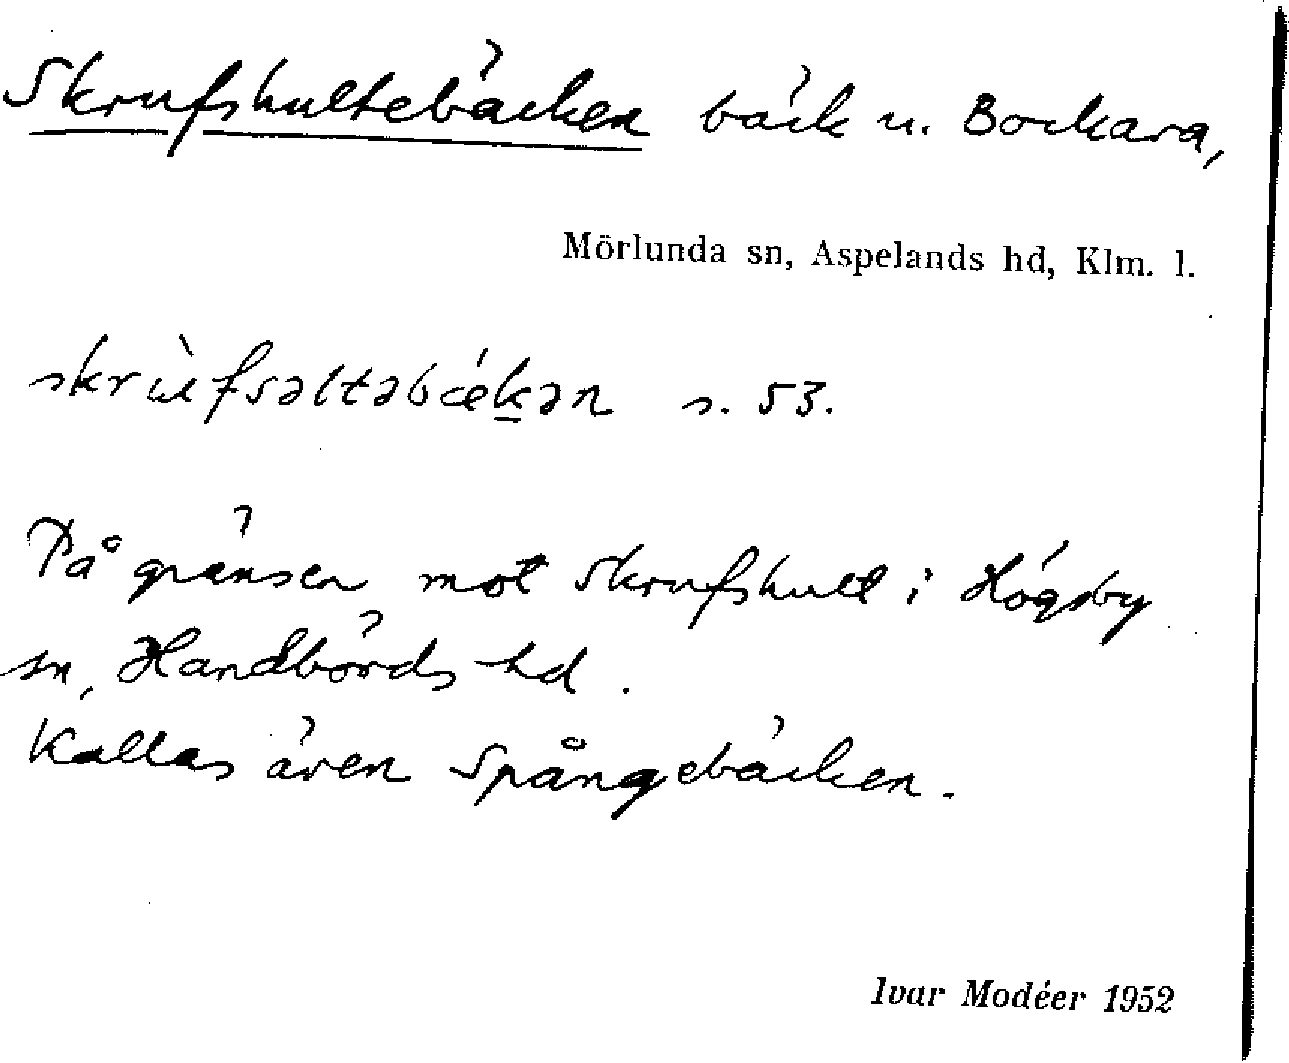 Skrufshultebäcken bäck u. Bockara,
Mörlunda sn, Aspelands hd, Klm. l.
skrùfsəltəbǽk̲ən s. 53.
På gränsen mot Skrufshult i Högsby
sn, Handbörds hd.
Kallas även Spångebäcken.
Ivar Modéer 1952